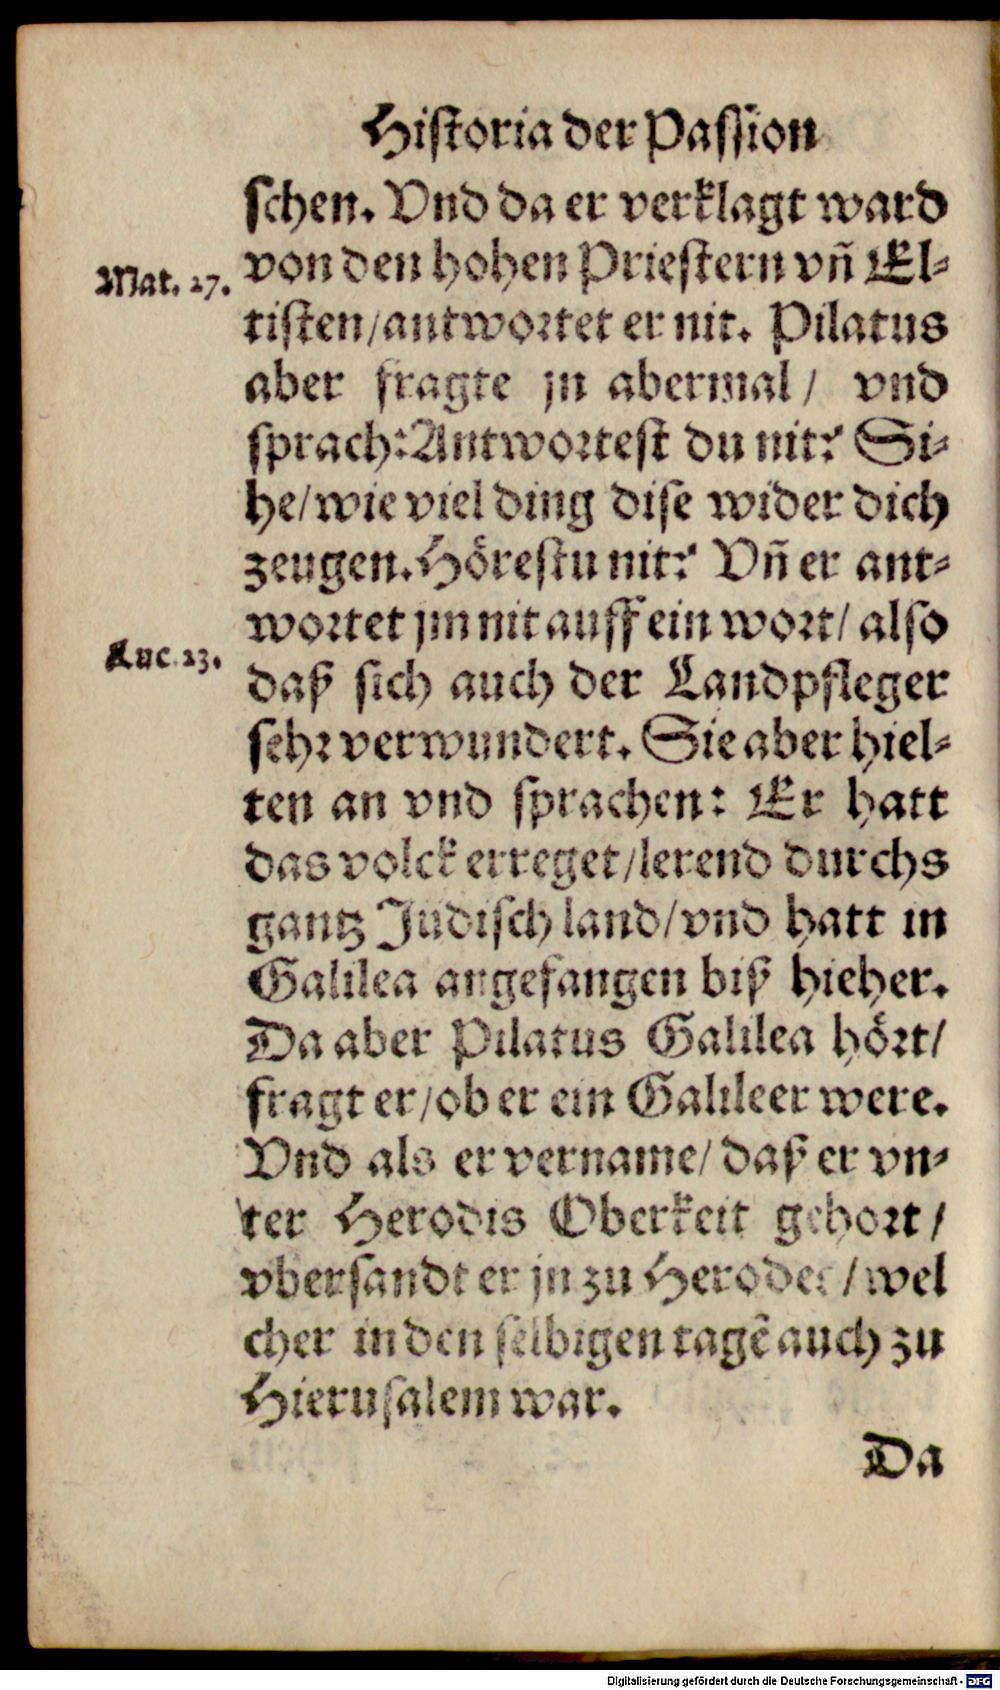 Historia der Passion
schen. Vnd da er verklagt ward
Mat. 27.
von den hohen Priestern vñ El-
tisten/antwortet er nit. Pilatus
aber fragte jn abermal/ vnd
sprach: Antwortest du nit? Si-
he/wie viel ding dise wider dich
zeugen. Hörestu nit? Vñ er ant-
wortet jm nit auff ein wort/ also
Luc. 23.
daß sich auch der Landpfleger
sehr verwundert. Sie aber hiel-
ten an vnd sprachen: Er hatt
das volck erreget/lerend durchs
gantz Judisch land/vnd hatt in
Galilea angefangen biß hieher.
Da aber Pilatus Galilea hört/
fragt er/ob er ein Galileer were.
Vnd als er vername/ daß er vn-
ter Herodis Oberkeit gehort/
vbersandt er jn zu Herodes/wel
cher in den selbigen tagẽ auch zu
Hierusalem war.
Da
Digitalisierung gefördert durch die Deutsche Forschungsgemeinschaft - DFG